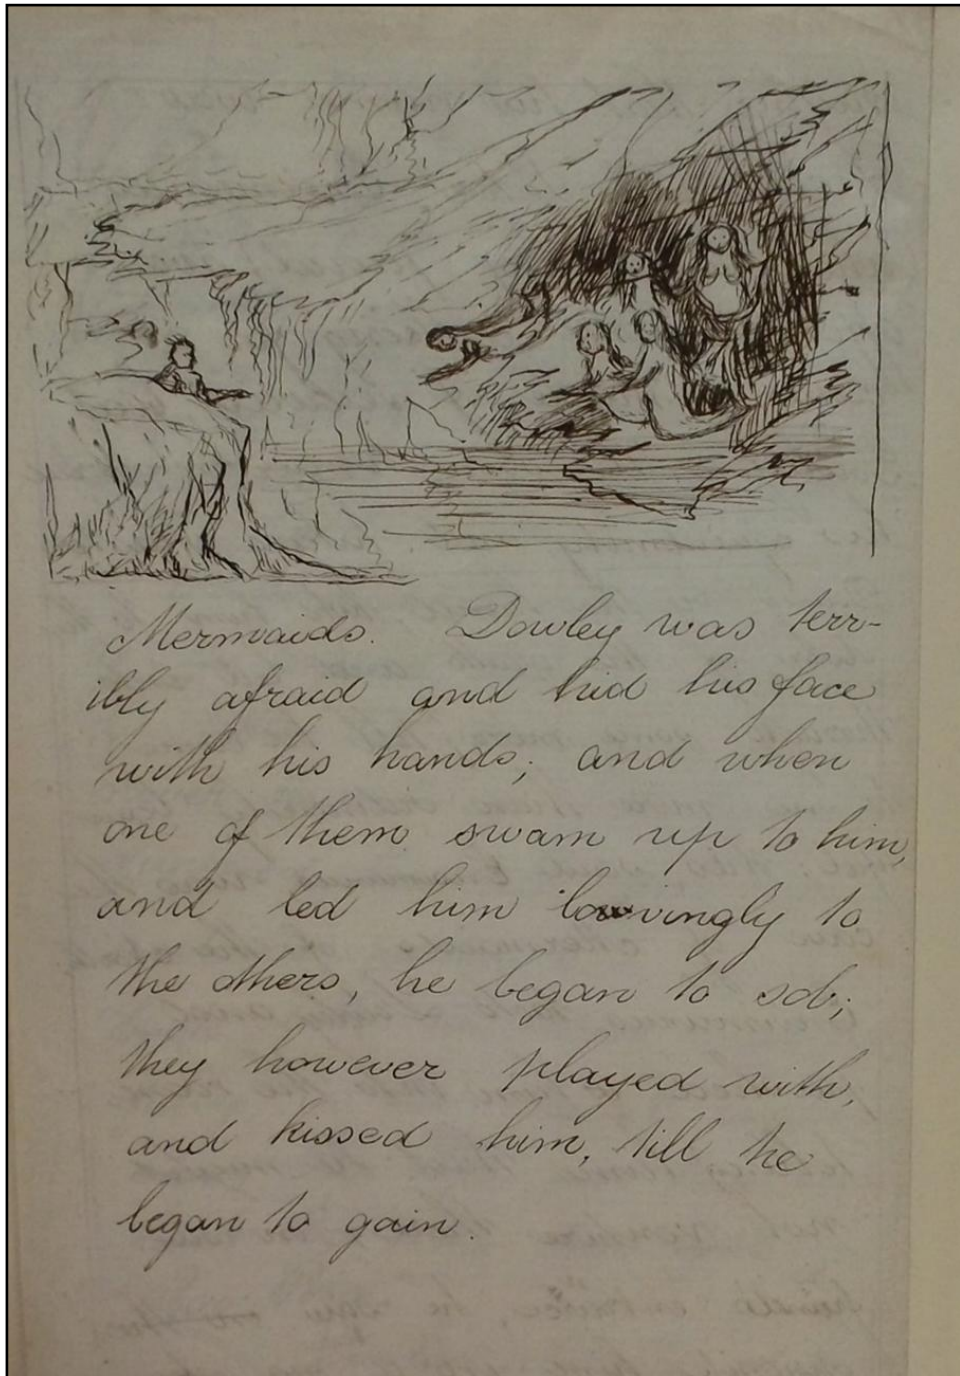 Mermaids. Dowley was terr-
ibly afraid and hid his face
with his hands; and when
one of them swam up to him,
and led him lovingly to
the others, he began to sob;
they however played with,
and kissed him, till he
began to gain.